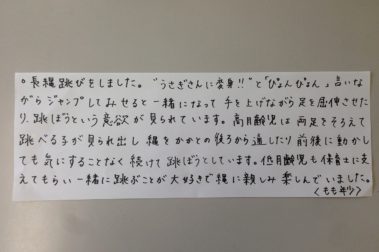 。長縄跳びをしました。"うさぎさんに変身!!"と「ぴょんぴょん」言いな
がらジャンプしてみせると一緒になって手を上げながら足を屈伸させた
り、跳ぼうという意欲が見られています。高月齢児は両足をそろえて
跳べる子が見られ出し縄をかかとの後ろから通したり前後に動かし
ても気にすることなく続けて跳ぼうとしています。低月齢児も保育士に支
えてもらい一緒に跳ぶことが大好きで縄に親しみ楽しんでいました。
〈もも年少〉